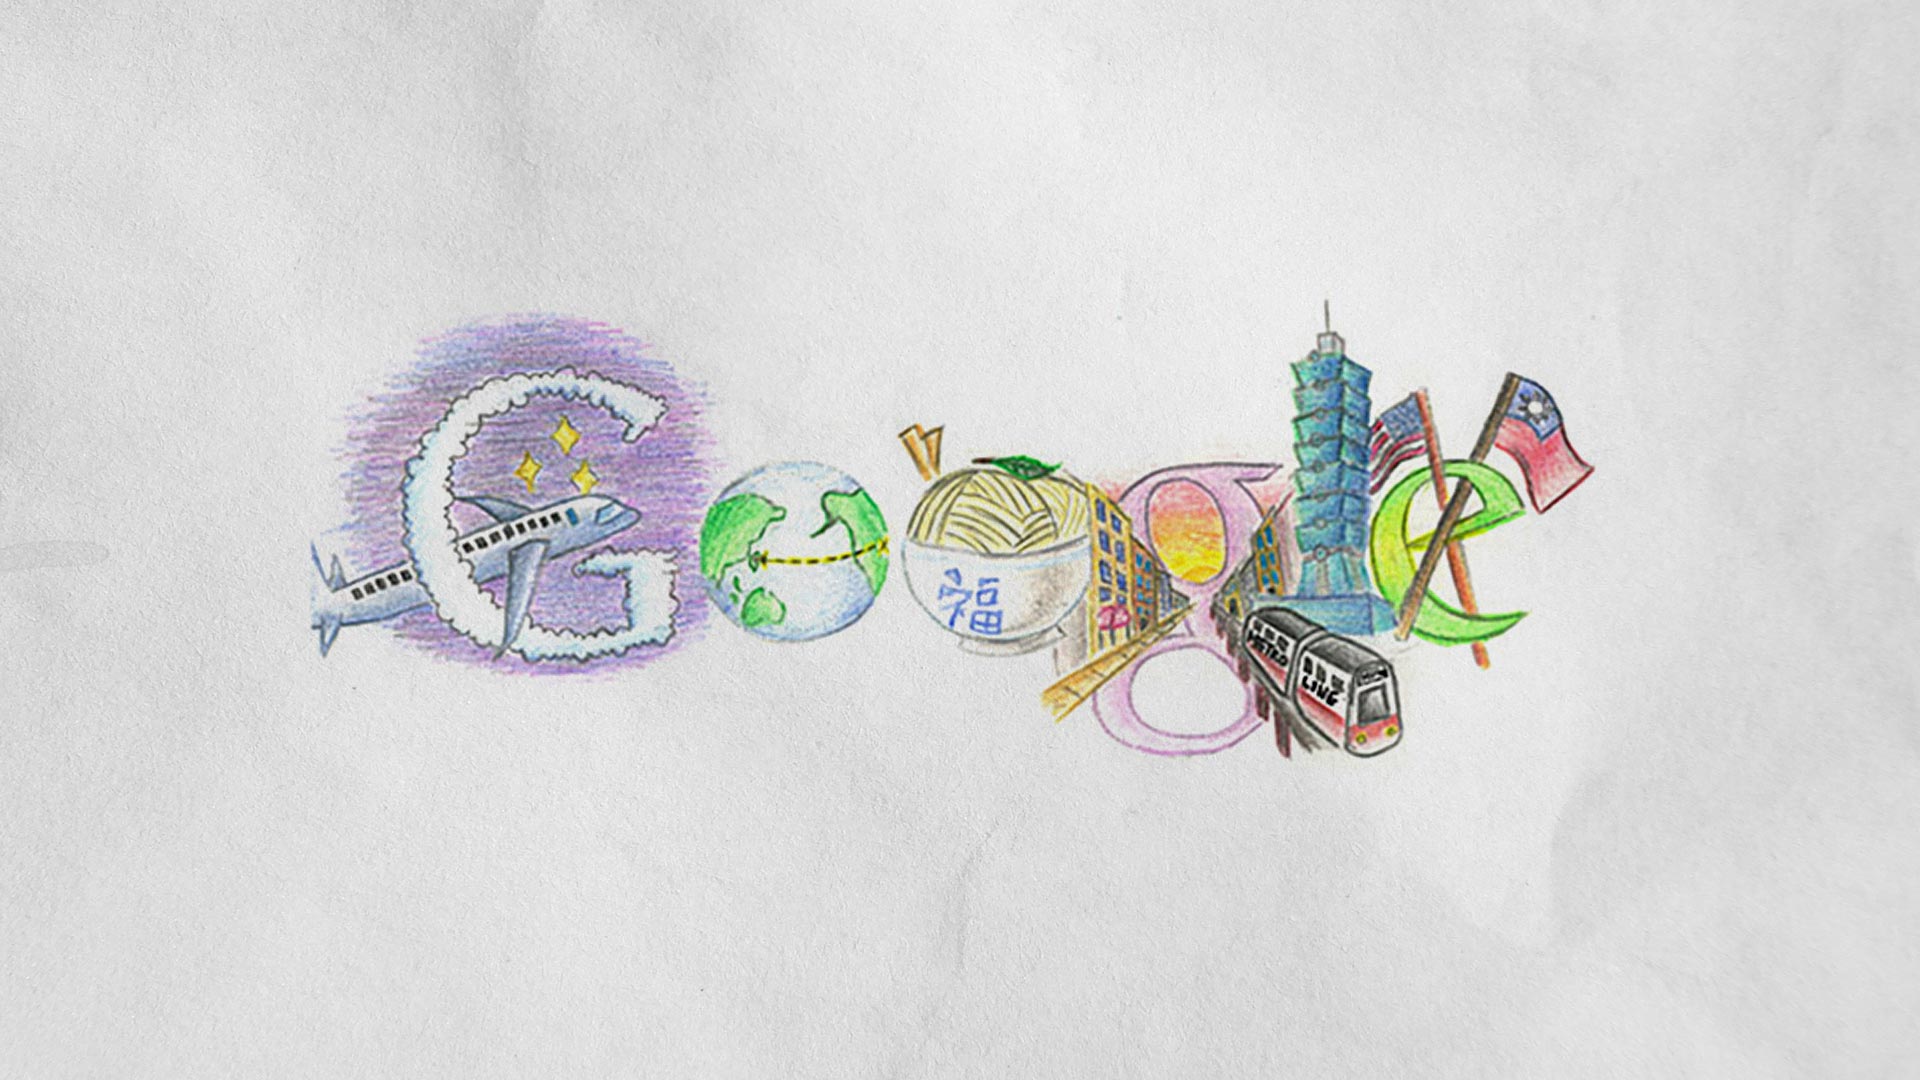 Google
福
METRO
LING